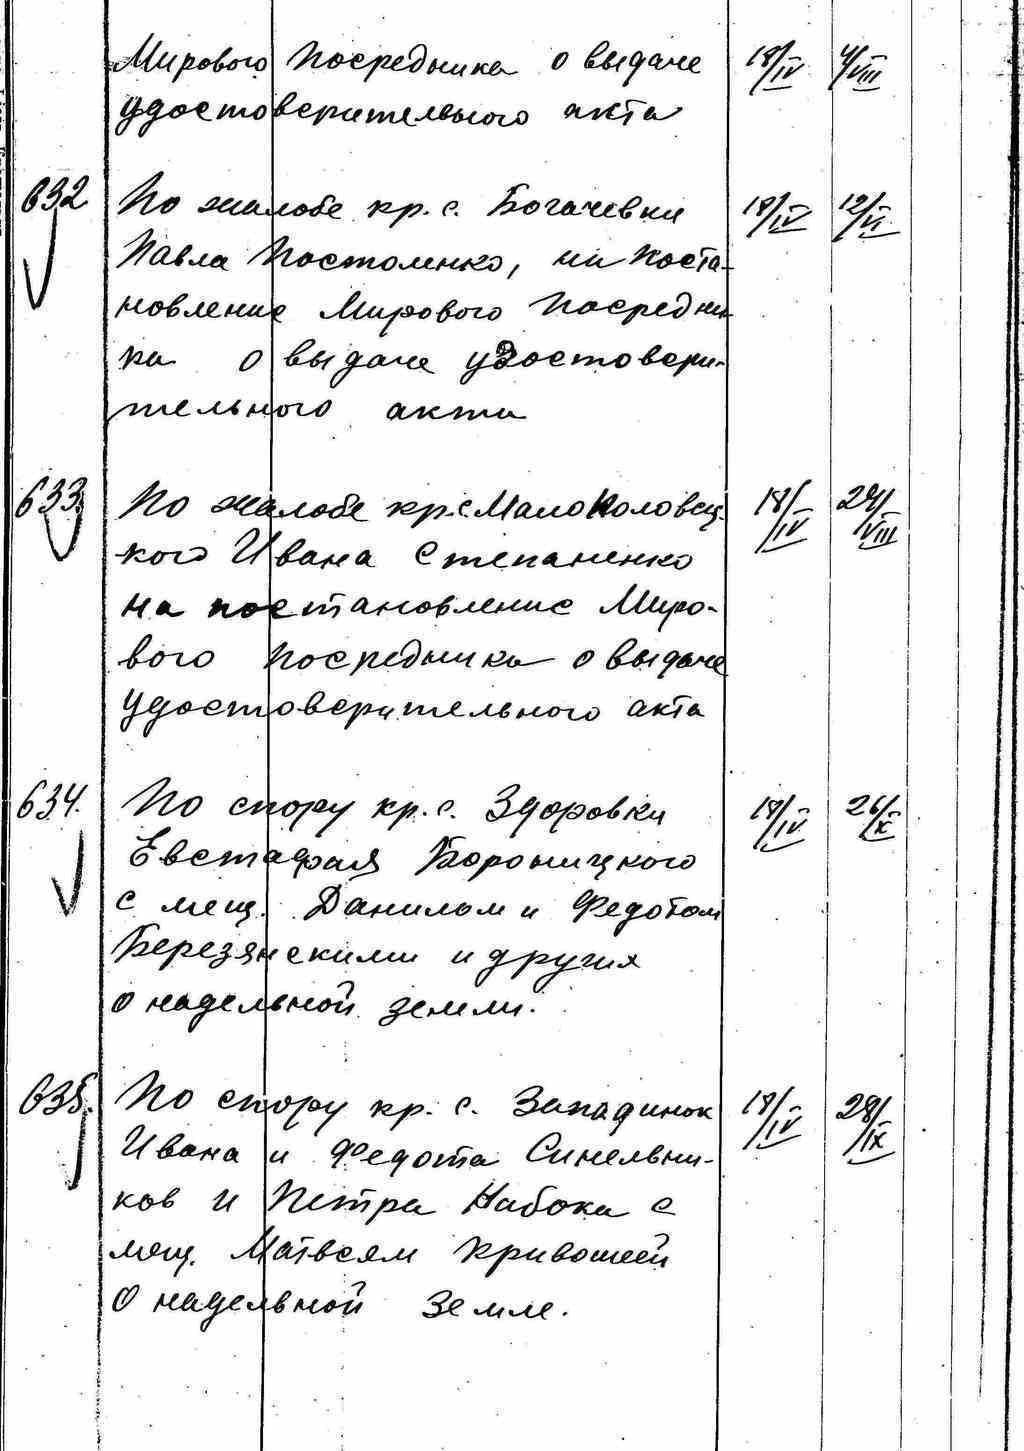 Мирового Посредника о выдаче 18/IV 4/VIII
удостоверительного акта
632 По жалобе кр. с. Богачевки 18/IV 12/VI
Павла Постоленко, на Поста-
новление Мирового Посредни-
ка о выдаче удостовери-
тельного акта
633. По жалобе кр. с. Малополовец- 18/IV 24/VIII
кого Ивана Степаненко
на постановление Миро-
вого Посредника о выдаче
удостоверительного акта
634. По спору кр. с. Здоровки 18/IV 26/X
Евстафия Бороницкого
с мещ. Данилом и Федотом
Березянскими и другия
о надельной земли.
635. По спору кр. с. Западинок 18/IV 28/IX
Ивана и Федота Синельни-
ков и Петра Набока с
мещ. Матвеем Кривошеей
о надельной земле.